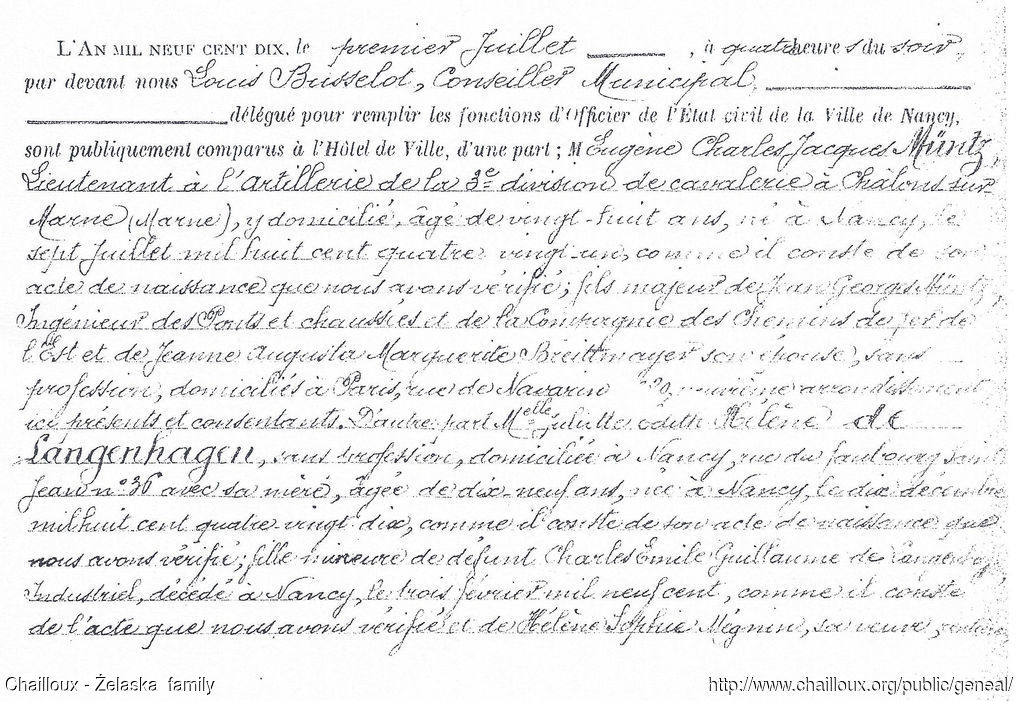 L'AN MIL NEUF CENT DIX, le premier Juillet , à quatre heures du soir,
par devant nous Louis Busselot, Conseiller Municipal,
délégué pour remplir les fonctions d'Officier de l'État civil de la Ville de Nancy,
sont publiquement comparus à l'Hôtel de Ville, d'une part ; M Eugène Charles Jacques Müntz
Lieutenant à l'artillerie de la 3e division de cavalerie à Châlons sur
Marne (Marne), y domicilié, âgé de vingt-huit ans, né à Nancy, le
sept Juillet mil huit cent quatre vingt un, comme il conste de son
acte de naissance que nous avons vérifié ; fils majeur de Jean Georges Müntz,
Ingénieur des Ponts et chaussées et de la Compagnie des Chemins de fer de
l'Est et de Jeanne Augusta Marguerite Breittmayer son épouse, sans
profession, domiciliés à Paris, rue de Navarin arrondissement
ici présents et consentants. D'autre part Melle Juliette Edith Hélène de
Langenhagen, sans profession, domiciliée à Nancy, rue du faubourg Saint
Jean n° 36 avec sa mère, âgée de dix-neuf ans, née à Nancy, le dix décembre
mil huit cent quatre vingt dix, comme il conste de son acte de naissance que
nous avons vérifié ; fille mineure de défunt Charles Emile Guillaume de Langenhagen,
Industriel, décédé à Nancy, le trois février mil neuf cent, comme il conste
de l'acte que nous avons vérifié et de Hélène Sophie Mégnin, sa veuve,
Chailloux - Żelaska family
http://www.chailloux.org/public/geneal/